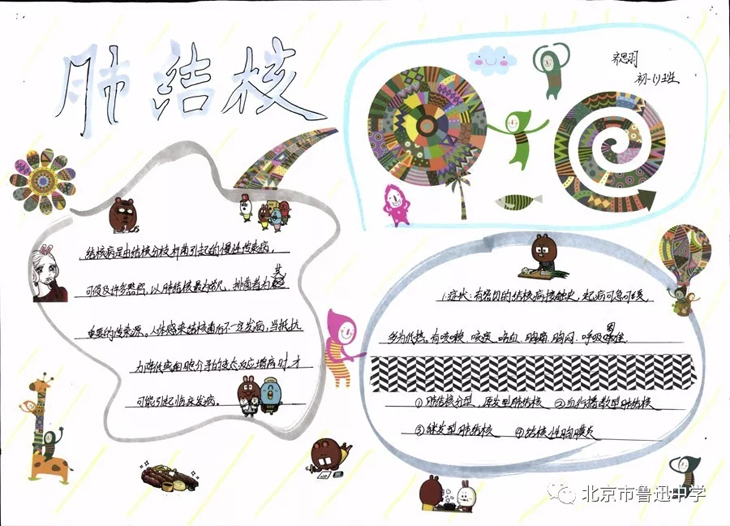 肺结核
初一(1)班
结核病是由结核分枝杆菌引起的慢性传染病,
可侵及许多脏器,以肺结核最为常见,排菌者为其
重要的传染源。人体感染结核菌后不一定发病,当抵抗
力降低或细胞介导的变态反应增高时,才
可能引起临床发病。
1.症状:有密切的结核病接触史,起病可急可缓,
多为低热,有咳嗽、咳痰、咯血、胸痛、胸闷、呼吸困难。
①肺结核分型 原发型肺结核 ②血行播散型肺结核
③继发型肺结核 ④结核性胸膜炎
北京市鲁迅中学